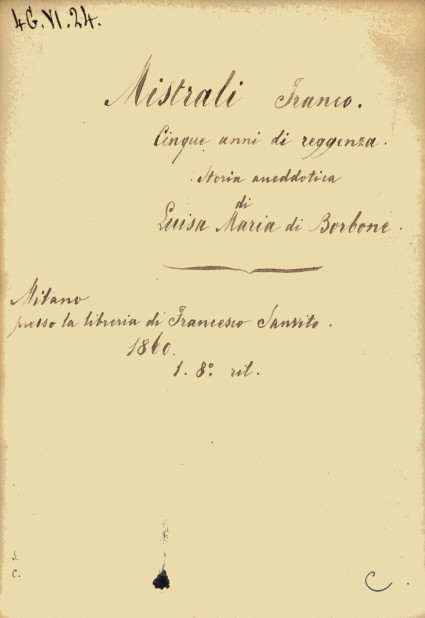 4G.VI.24.
Mistrali Franco.
Cinque anni di reggenza.
Storia aneddotica
di
Luisa Maria di Borbone.
Milano
presso la libreria di Francesco Sanvito.
1860.
1. 8º. ril.
S.
C.
C.